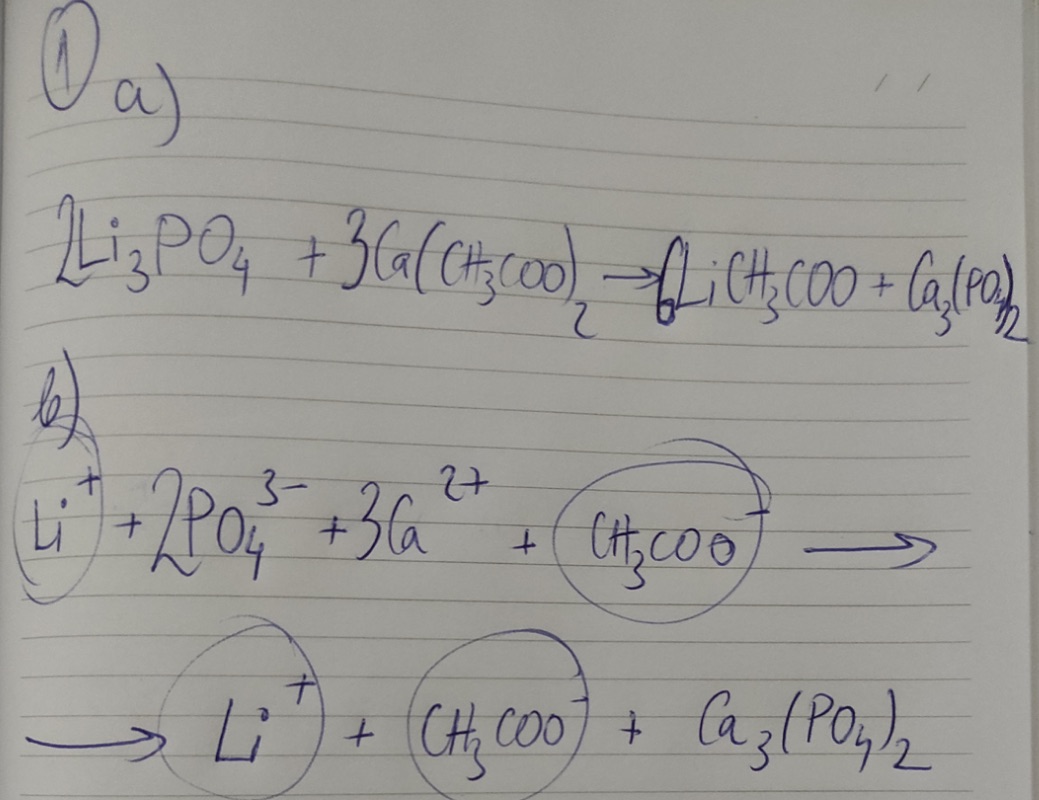 ① a)
2Li₃PO₄ + 3Ca(CH₃COO)₂ → 6LiCH₃COO + Ca₃(PO₄)₂
b)
Li⁺ + 2PO₄³⁻ + 3Ca²⁺ + CH₃COO⁻ →
→ Li⁺ + CH₃COO⁻ + Ca₃(PO₄)₂